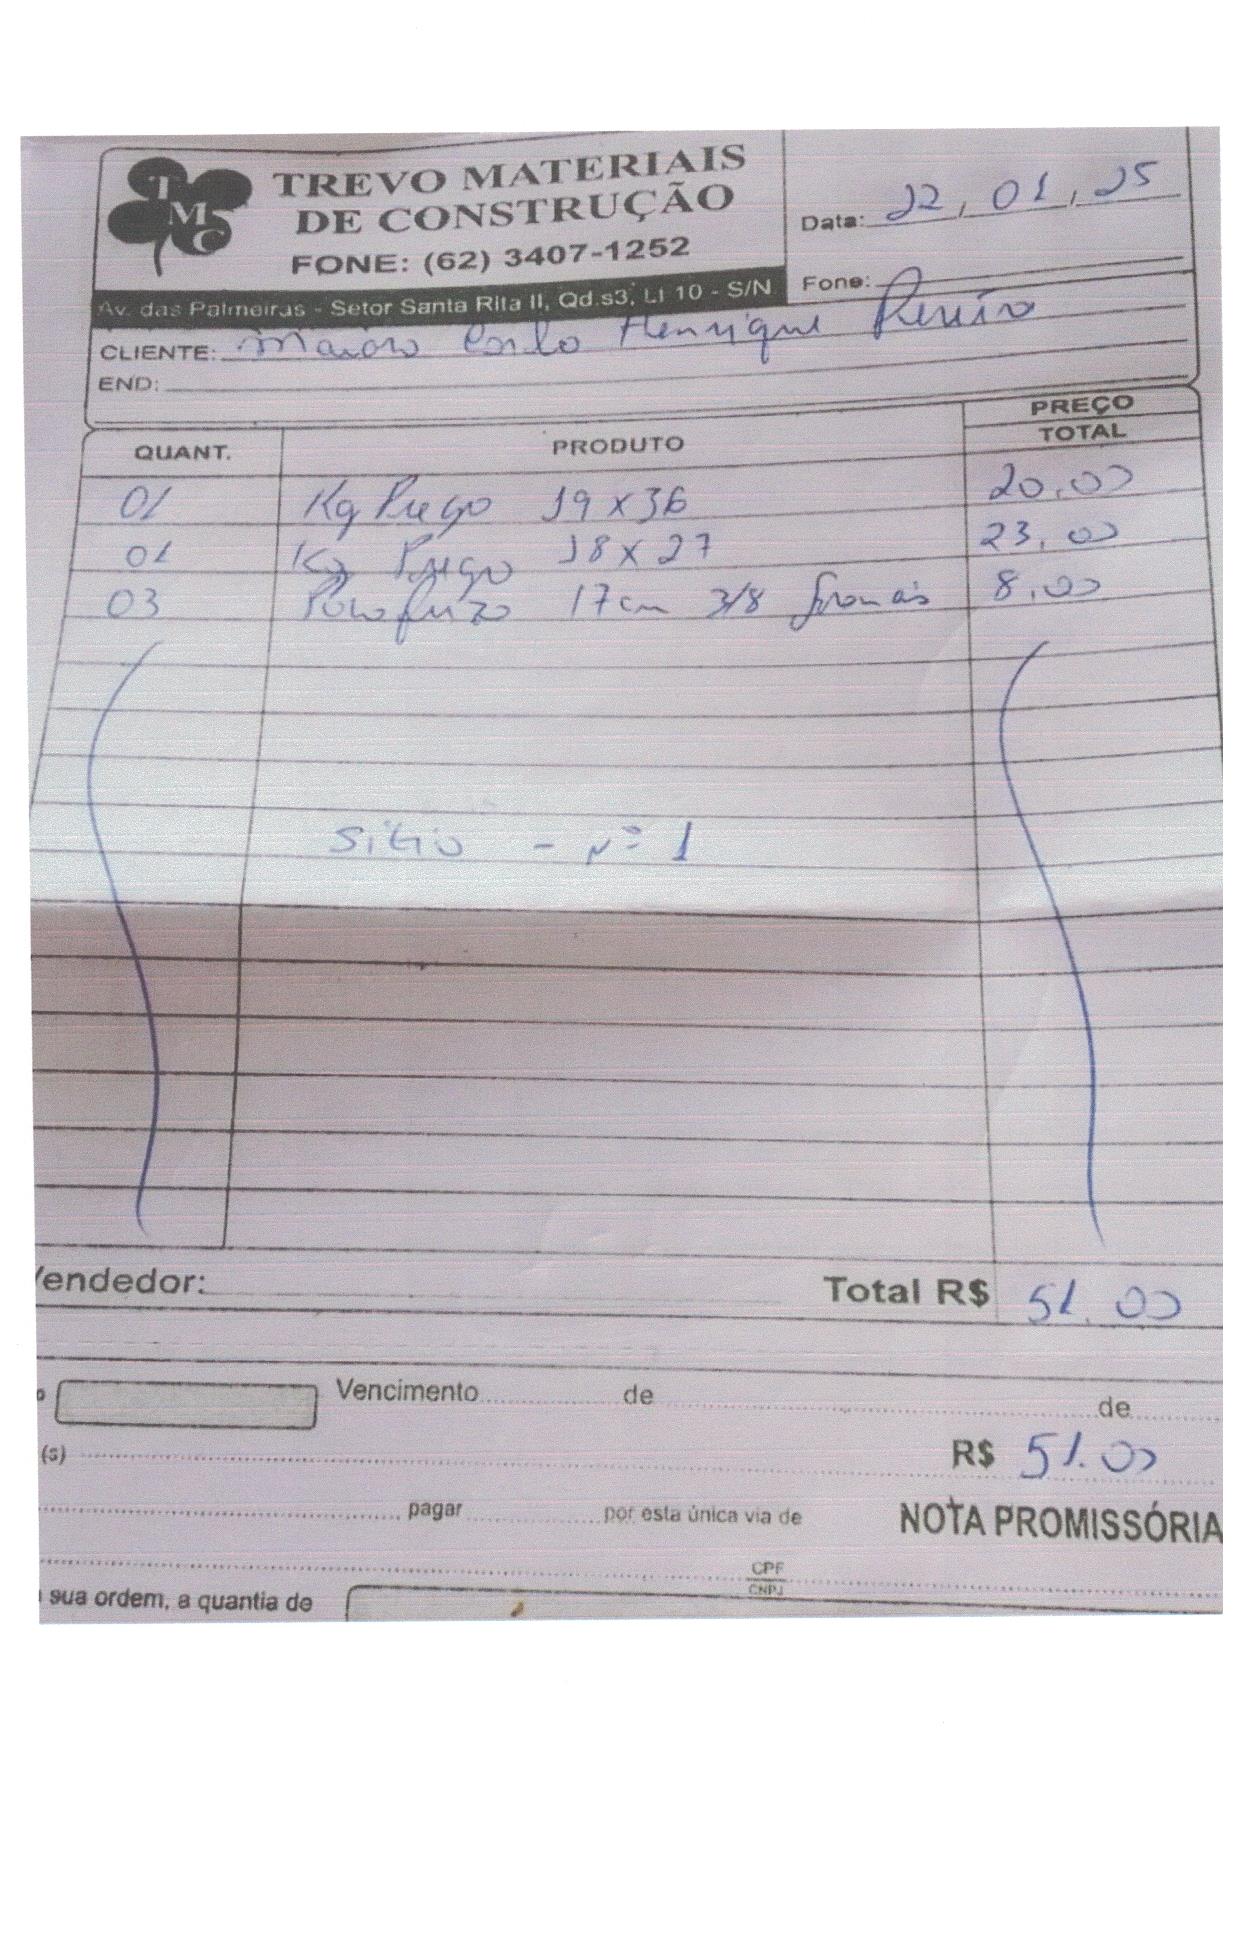 TMC
TREVO MATERIAIS
DE CONSTRUÇÃO
FONE: (62) 3407-1252
Av. das Palmeiras - Setor Santa Rita II, Qd.s3, Lt 10 - S/N
Data: 22, 01, 25
Fone:
CLIENTE: Henrique
END:
QUANT. PRODUTO PREÇO TOTAL
01 Kg Prego 19 x 36 20,00
01 Kg Prego 18 x 27 23,00
03 Parafuzo 17cm 3/8 8,00
Sitio - nº 1
Vendedor: Total R$ 51.00
Vencimento de de
(s) R$ 51.00
pagar por esta única via de NOTA PROMISSÓRIA
CPF
CNPJ
sua ordem, a quantia de